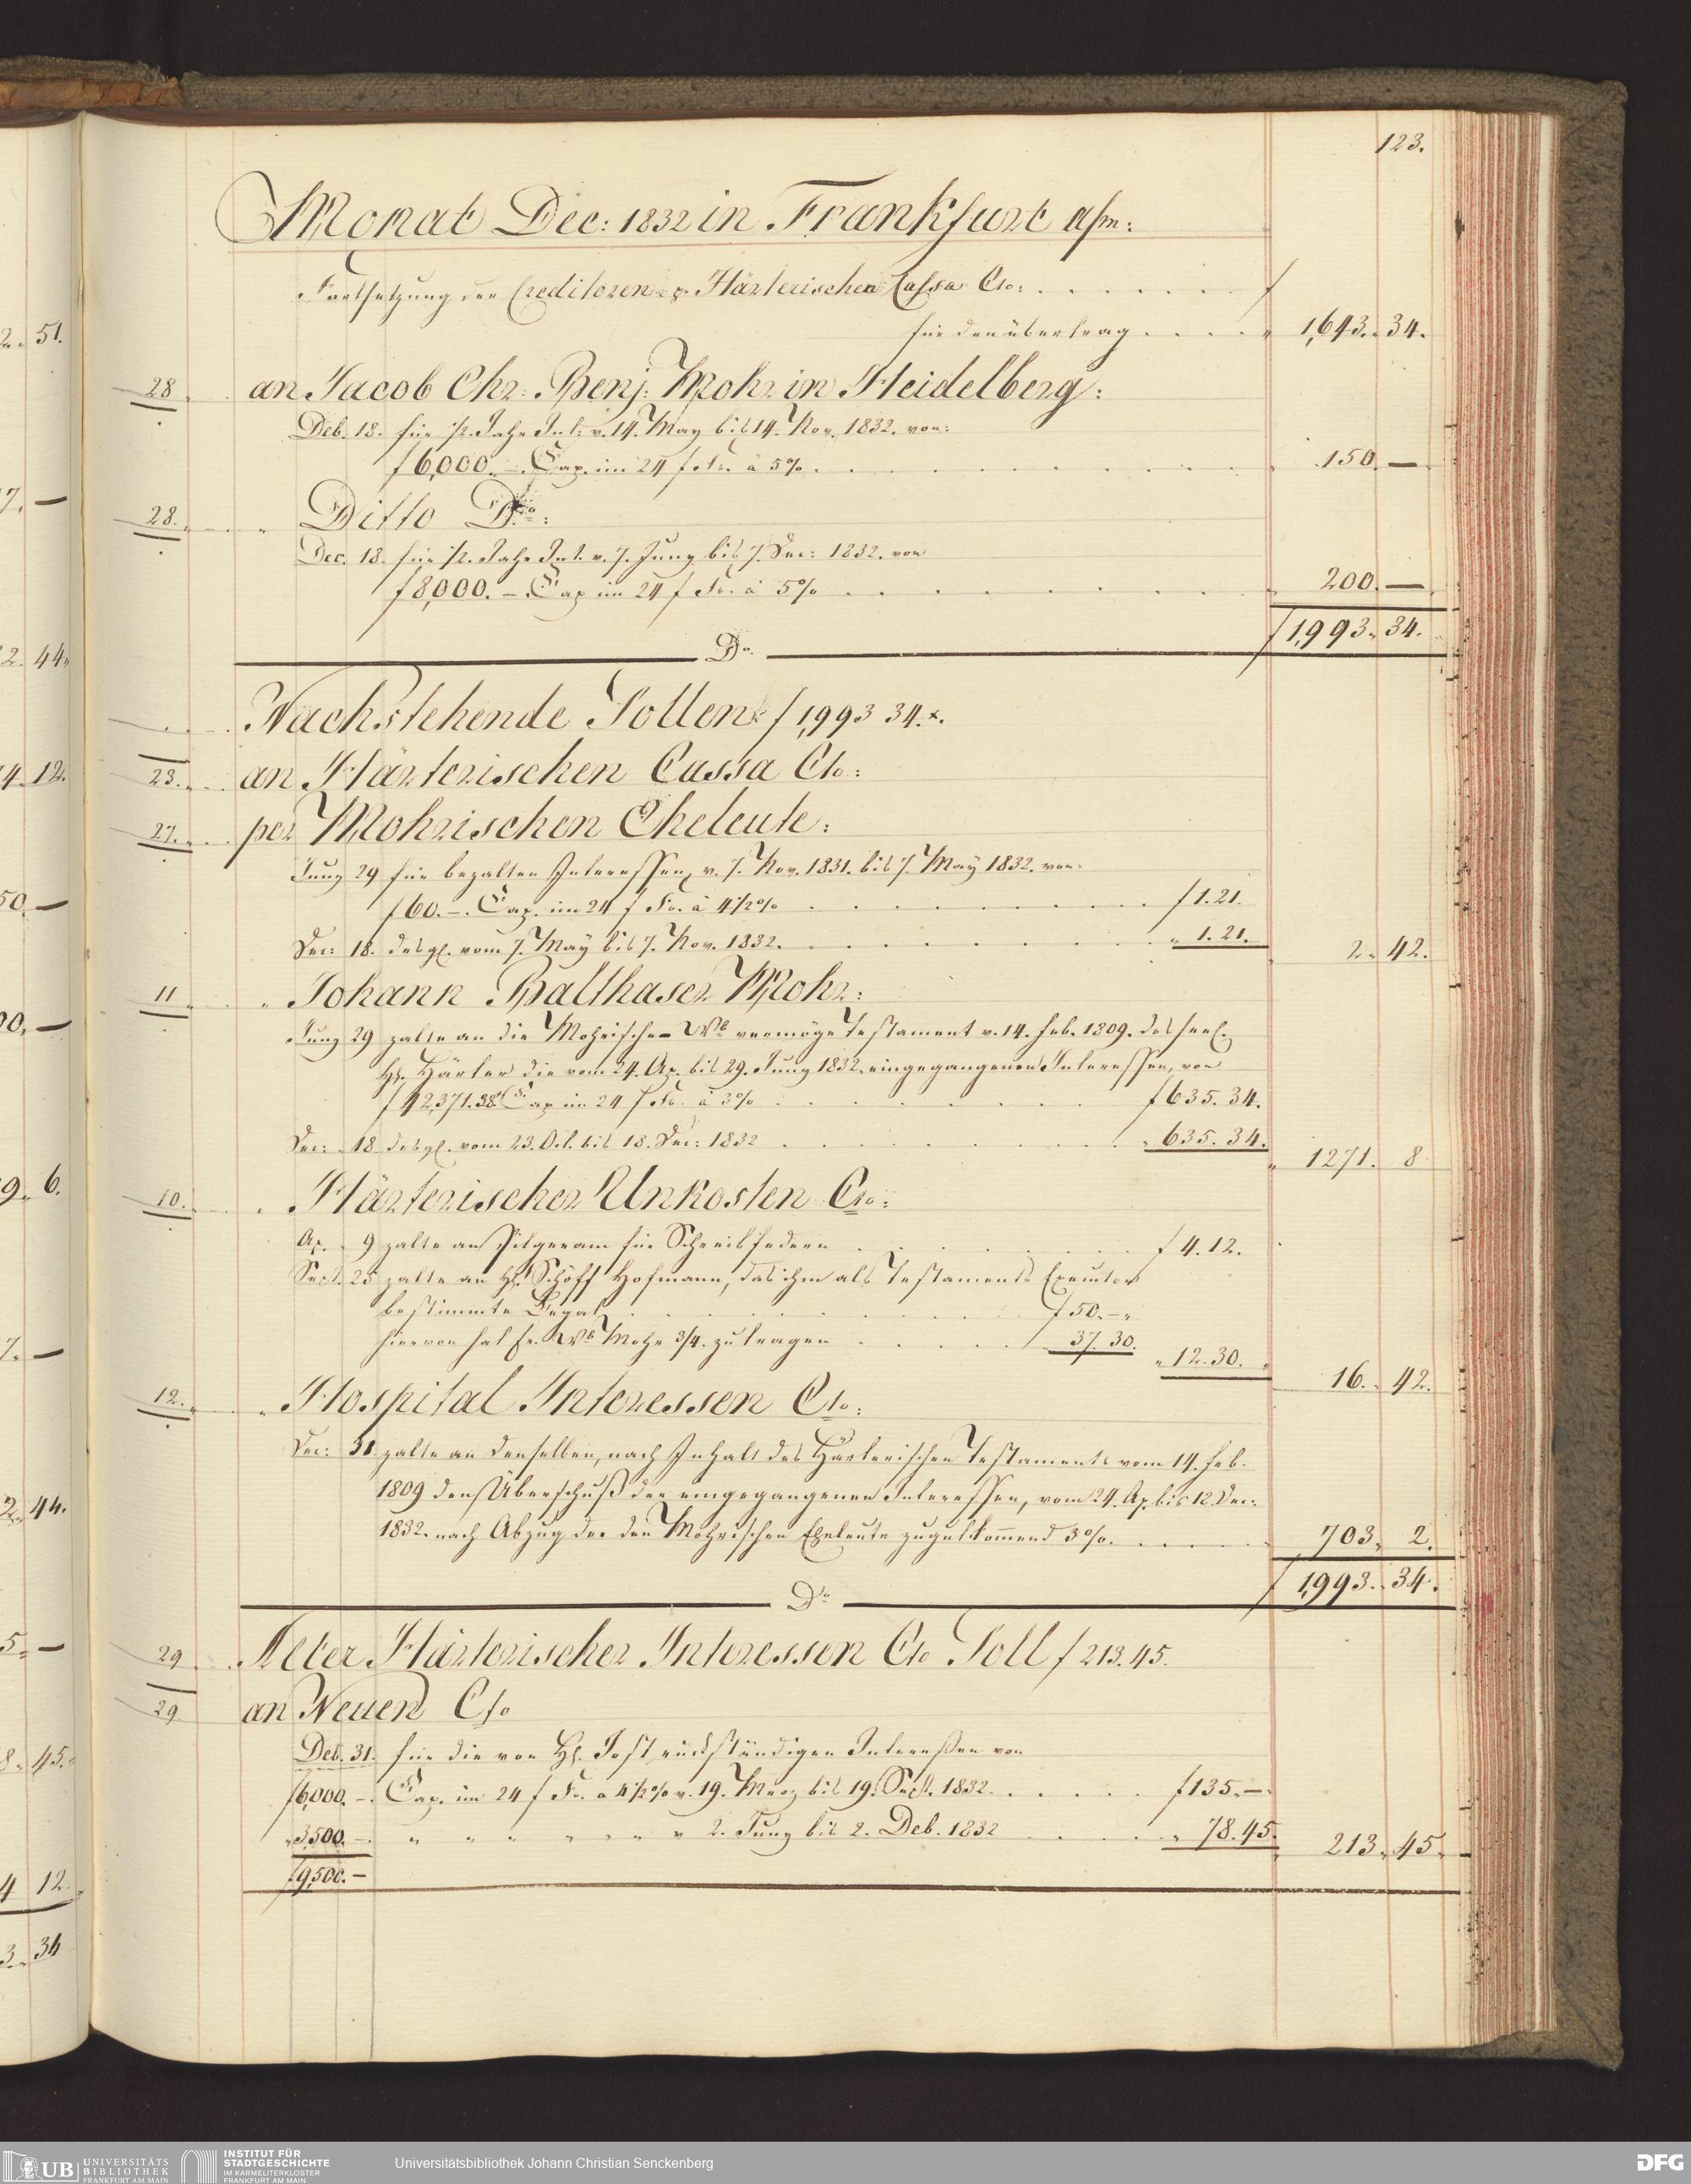 123.
Monat Dec: 1832 in Frankfurt a/m:
Fortsetzung der Creditoren p. Härterischen Cassa Cto: f
für den übertrag " 1,643. 34.
28 an Jacob Chr: Benj: Mohr in Heidelberg:
Deb. 18. für 1/2 Jahr Int: v. 14. May bis 14. Nov. 1832. von:
f 6,000.—. Cap. im 24 f Fs. à 5% 150.—
28. " Ditto Do:
Dec. 18. für 1/2 Jahr Int. v. 7. Juny bis 7. Dec: 1832. von
f 8,000.—. Cap im 24 f Fs. à 5% 200.—
f 1,993. 34.
Do.
Nachstehende Sollen f 1,993 34.x.
23. an Härterischen Cassa Cto:
27. per Mohrischen Eheleute:
Juny 29 für bezalten Interessen, v. 7. Nov. 1831. bis 7. May 1832. von:
f 60.—. Cap. im 24 f Fs. à 4 1/2% f 1.21.
Dec: 18. desgl. vom 7. May bis 7. Nov. 1832. " 1.21. 2. 42.
11 " Johann Balthaser Mohr:
Juny 29 zalte an die Mohrische Wb vermöge Testament v. 14. Feb. 1809. des seel.
H. Härter die vom 24. Ap. bis 29. Juny 1832. eingegangenen Interessen, von
f 42,371.38 Cap im 24 f Fs. à 3% f 635. 34.
Dec: 18 desgl. vom 23. Oct. bis 18. Dec: 1832 " 635. 34. " 1271. 8
10. " Härterischer Unkosten Cto:
Ap. 9 zalte an Pilgeram für Schreibfedern f 4. 12.
Sept. 25 zalte an H. Schöff Hofmann, das ihm als Testaments Executor
bestimmte Legat f 50.—
hiervon hat fr. Wb Mohr 3/4. zu tragen 37. 30. " 12. 30. 16. 42.
12. " Hospital Interessen Cto:
Dec: 31 zalte an denselben, nach Inhalt des Härterischen Testaments vom 14. Feb.
1809 den Überschuß der eingegangenen Interessen, vom 24. Ap bis 12. Dec:
1832. nach Abzug der den Mohrischen Eheleute zugutkommend 3%. 703. 2.
f 1,993. 34.
Do
29 Alter Härterischer Interessen Cto Soll f 213. 45.
29 an Neuen Cto
Deb. 31. für die von H. Jost rückständigen Interessen von
f 6,000.—. Cap. im 24 f Fs. a 4 1/2% v. 19. Merz bis 19. Sept. 1832. f 135.—
" 3,500.—. " " " " " " v 2. Juny bis 2. Deb. 1832 " 78. 45. 213. 45.
f 9,500.—
2. 51.
7. —
2. 44
4. 12.
50. —
00. —
9. 6.
7. —
2. 44.
5. —
8. 45.
4 12.
3. 34
UB UNIVERSITÄTS
BIBLIOTHEK
FRANKFURT AM MAIN
INSTITUT FÜR
STADTGESCHICHTE
IM KARMELITERKLOSTER
FRANKFURT AM MAIN
Universitätsbibliothek Johann Christian Senckenberg
DFG